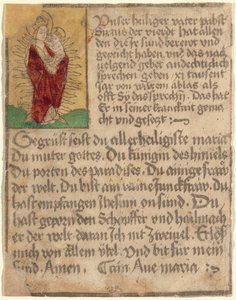 Vnser heiliger vater pabst
Sixtus der vierd hat allen
den die sünd berewt vnd
gepeicht haben vnd das nach
uelgend gebet andechtiklich
sprechen geben xi tausent
iar von warem ablas als
offt sy das sprechen. Das hat
er in seiner kranckait gema
cht vnd gesegt
Gegrüst seist du aller heiligiste maria
Du muter gottes. Du künigin des himels
Du porten des paradises. Du ainige fraw
der welt. Du bist ain raine iunckfraw. Du
hast empfangen ihesum on sünd. Du
hast geporn den Schöpffer vnd hailmach
er der welt daran ich nit zweivel. Erlöß
mich von allem übel. Vnd bit für mein
sünd. Amen. Ave maria